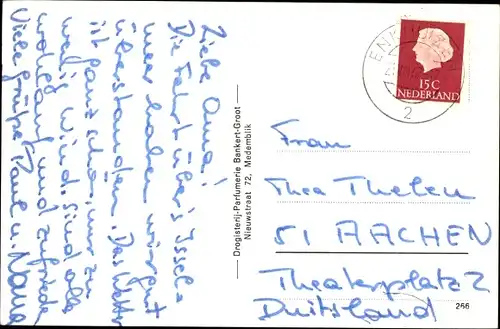 Liebe Oma!
Die Fahrt über's Ijssel-
meer haben wir gut
überstanden. Das Wetter
ist ganz schön, nur zu
wenig Wind. Sind alle
wohlauf und zufrieden
Viele Grüße Paul u. Nana
Drogisterij-Parfumerie Bankert-Groot
Nieuwstraat 72, Medemblik
ENKHUIZEN
2
15C
NEDERLAND
Frau
Thea Thelen
51 AACHEN
Theaterplatz 2
Duitsland
266